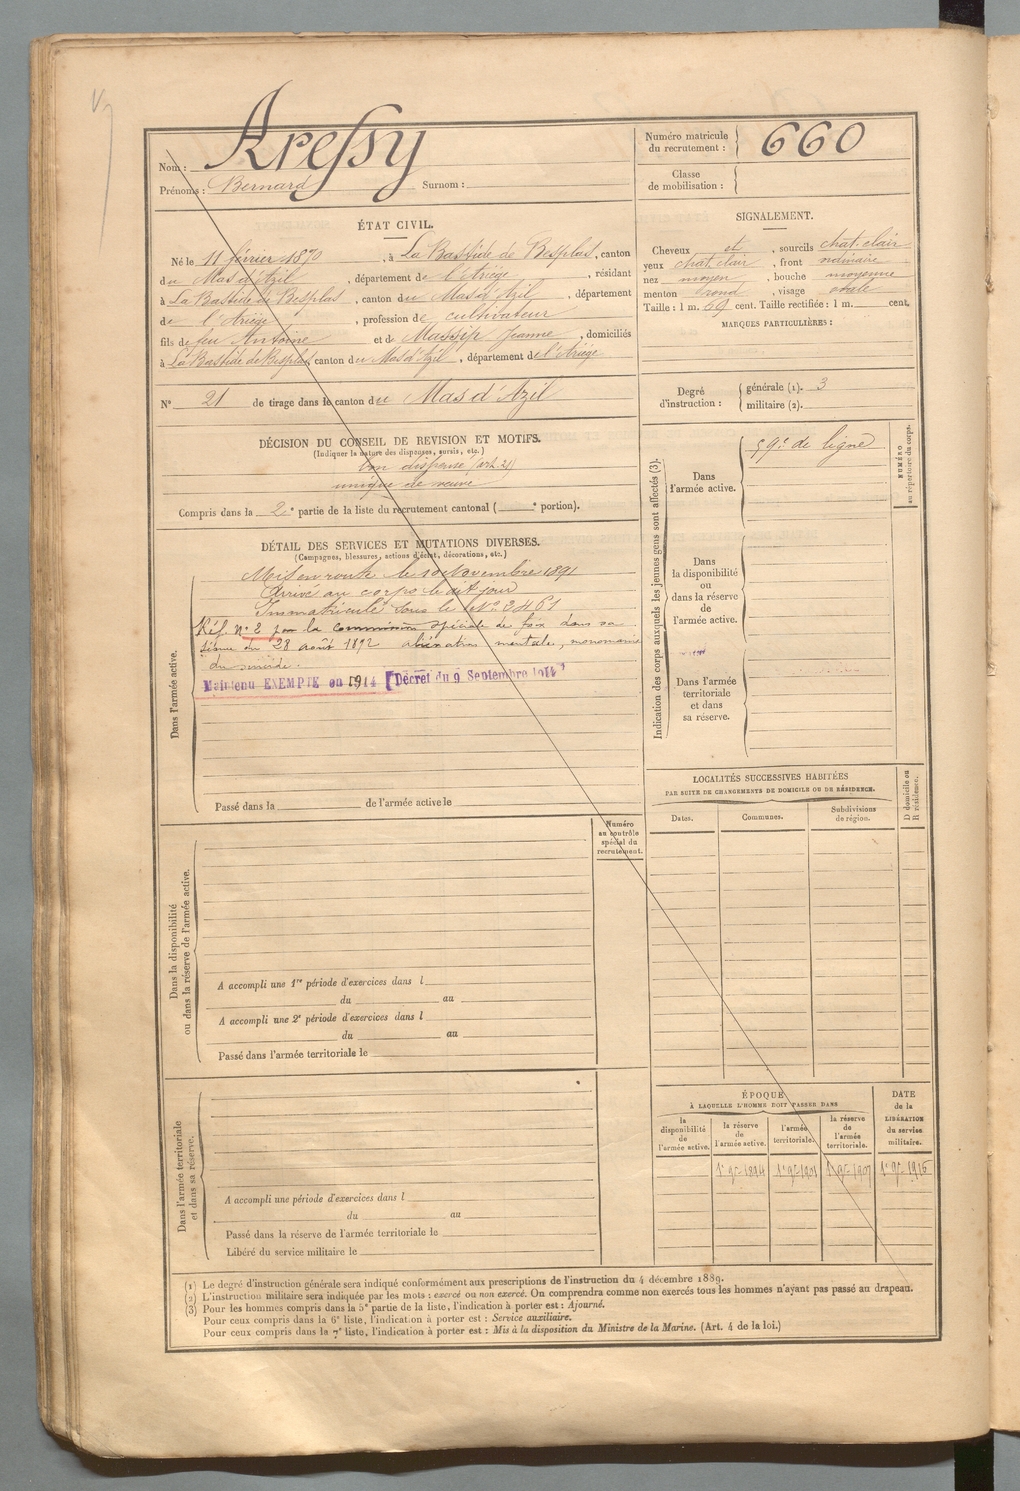 Nom : Aressy
Prénoms : Bernard Surnom :
Numéro matricule du recrutement : 660
Classe de mobilisation :
ÉTAT CIVIL.
Né le 11 février 1870, à La Bastide de Besplas, canton
du Mas d'Azil, département de l'Ariège, résidant
à La Bastide de Besplas, canton du Mas d'Azil, département
de l'Ariège, profession de cultivateur
fils de feu Antoine et de Massip Jeanne, domiciliés
à La Bastide de Besplas, canton du Mas d'Azil, département de l'Ariège
N° 21 de tirage dans le canton du Mas d'Azil
SIGNALEMENT.
Cheveux et, sourcils chât. clair
yeux chât. clair, front ordinaire
nez moyen, bouche moyenne
menton rond, visage ovale
Taille : 1 m. 59 cent. Taille rectifiée : 1 m. cent.
MARQUES PARTICULIÈRES :
Degré d'instruction : générale (1). 3
militaire (2).
DÉCISION DU CONSEIL DE REVISION ET MOTIFS.
(Indiquer la nature des dispenses, sursis, etc.)
bon dispensé (art. 21)
unique de veuve
Compris dans la 2e partie de la liste du recrutement cantonal ( e portion).
DÉTAIL DES SERVICES ET MUTATIONS DIVERSES.
(Campagnes, blessures, actions d'éclat, décorations, etc.)
Dans l'armée active.
Mis en route le 10 Novembre 1891
Arrivé au corps le dit jour
Immatriculé sous le N° 2461
Réf. n° 2 par la commission spéciale de Foix dans sa
séance du 28 août 1892 aliénation mentale, monomanie
du suicide.
Maintenu EXEMPTÉ en 1914 [Décret du 9 Septembre 1914]
Passé dans la de l'armée active le
Indication des corps auxquels les jeunes gens sont affectés (3).
Dans l'armée active.
59e de ligne
NUMÉRO au répertoire du corps.
Dans la disponibilité ou dans la réserve de l'armée active.
Dans l'armée territoriale et dans sa réserve.
LOCALITÉS SUCCESSIVES HABITÉES
PAR SUITE DE CHANGEMENTS DE DOMICILE OU DE RÉSIDENCE.
Dates. Communes. Subdivisions de région. D domicile ou R résidence.
Numéro au contrôle spécial du recrutement.
Dans la disponibilité ou dans la réserve de l'armée active.
A accompli une 1re période d'exercices dans l
du au
A accompli une 2e période d'exercices dans l
du au
Passé dans l'armée territoriale le
Dans l'armée territoriale et dans sa réserve.
A accompli une période d'exercices dans l
du au
Passé dans la réserve de l'armée territoriale le
Libéré du service militaire le
ÉPOQUE
À LAQUELLE L'HOMME DOIT PASSER DANS
la disponibilité de l'armée active.
la réserve de l'armée active.
l'armée territoriale.
la réserve de l'armée territoriale.
DATE de la LIBÉRATION du service militaire.
1er 9bre 1894 1er 9bre 1901 1er 9bre 1907 1er 9bre 1916
(1) Le degré d'instruction générale sera indiqué conformément aux prescriptions de l'instruction du 4 décembre 1889.
(2) L'instruction militaire sera indiquée par les mots : exercé ou non exercé. On comprendra comme non exercés tous les hommes n'ayant pas passé au drapeau.
(3) Pour les hommes compris dans la 5e partie de la liste, l'indication à porter est : Ajourné.
Pour ceux compris dans la 6e liste, l'indication à porter est : Service auxiliaire.
Pour ceux compris dans la 7e liste, l'indication à porter est : Mis à la disposition du Ministre de la Marine. (Art. 4 de la loi.)